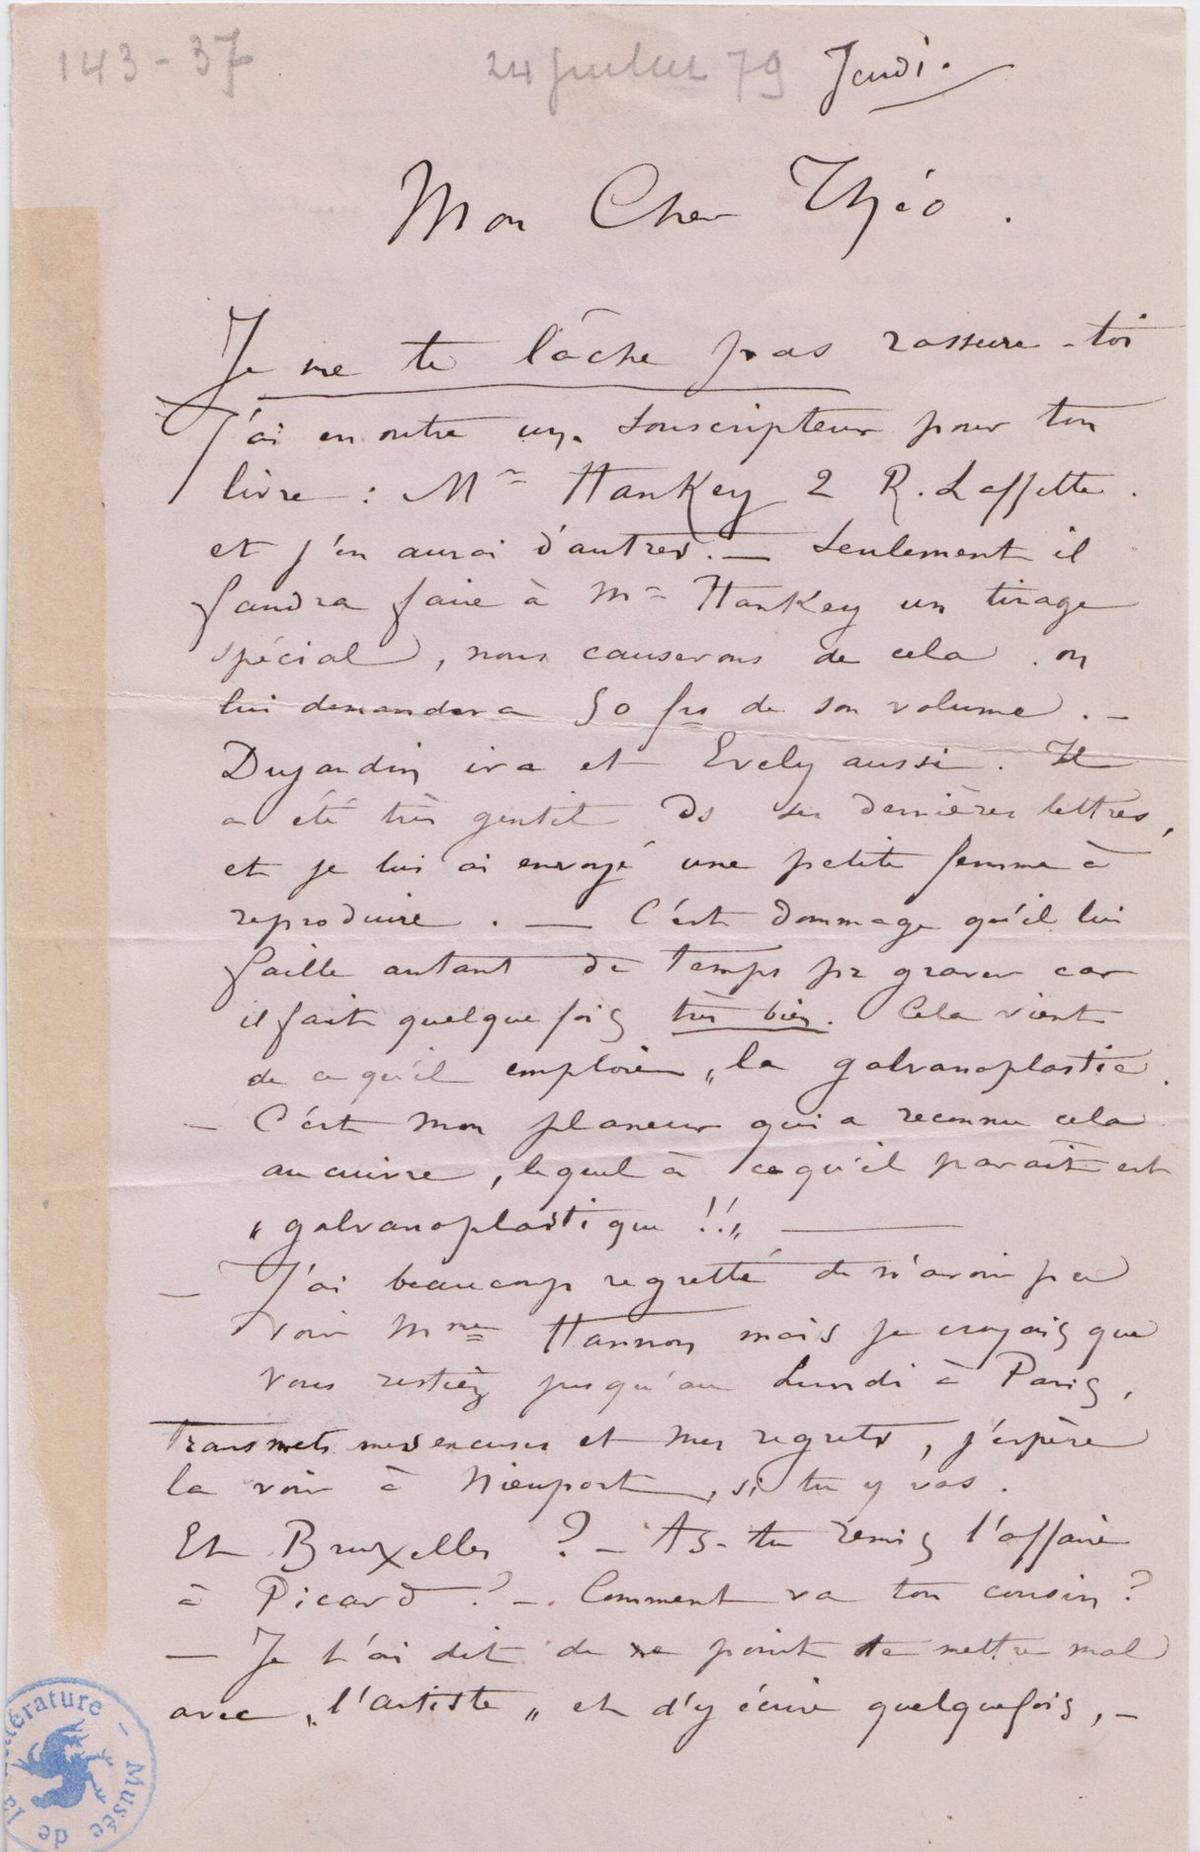 143-37
24 juillet 79 Jeudi.
Mon Cher Théo.
Je ne te lâche pas rassure-toi
J'ai en outre un souscripteur pour ton
livre : Mr Hankey 2 R. Laffitte.
et j'en aurai d'autres. — Seulement il
faudra faire à Mr Hankey un tirage
spécial, nous causerons de cela. on
lui demandera 50 frs de son volume. —
Dujardin ira et Evely aussi. Il
a été très gentil ds ses dernières lettres,
et je lui ai envoyé une petite femme à
reproduire. — C'est dommage qu'il lui
faille autant de temps pr graver car
il fait quelquefois très bien. Cela vient
de ce qu'il emploie „la galvanoplastie.
— C'est mon planeur qui a reconnu cela
au cuivre, lequel à ce qu'il parait est
„galvanoplastique !!„ —
— J'ai beaucoup regretté de n'avoir pu
voir Mme Hannon mais je croyais que
vous restiez jusqu'au Lundi à Paris,
Transmets mes excuses et mes regrets, j'espère
la voir à Nieuport, si tu y vas.
Et Bruxelles ? — As-tu remis l'affaire
à Picard ? —. Comment va ton cousin ?
— Je t'ai dit de ne point te mettre mal
avec „l'artiste„ et d'y écrire quelquefois, —
Musée de la Littérature —